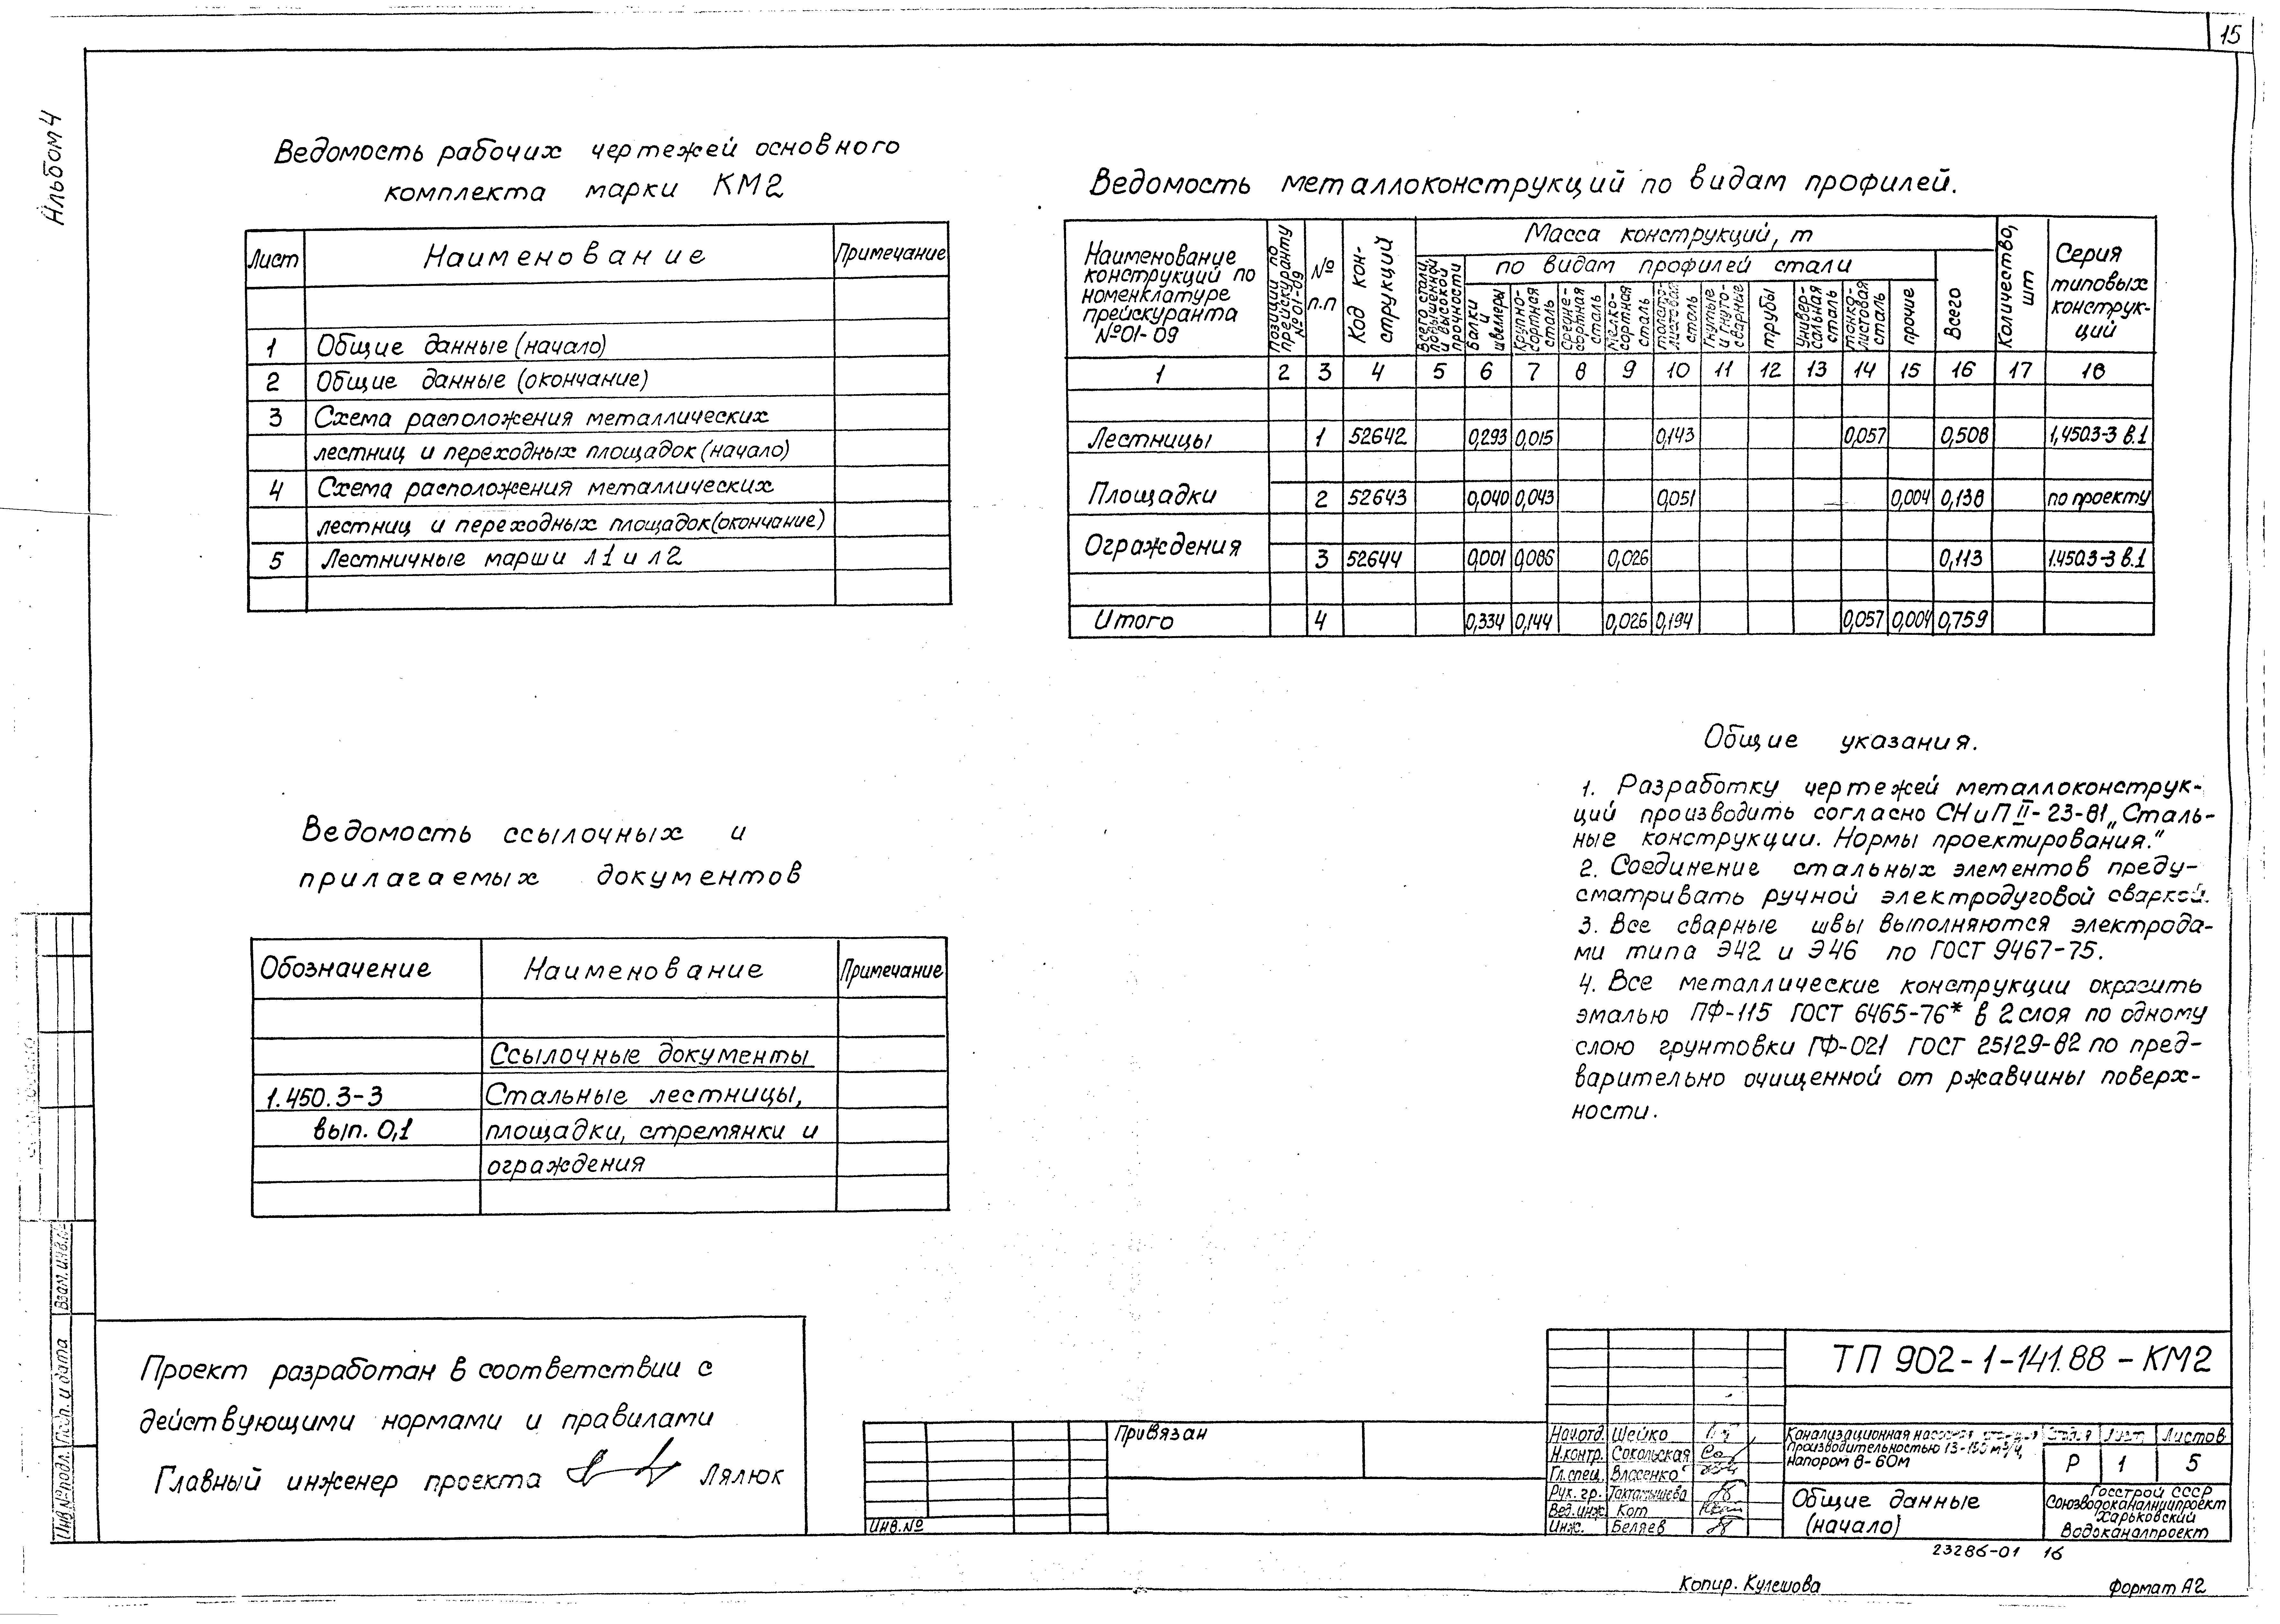 15
Альбом 4
Ведомость рабочих чертежей основного
комплекта марки КМ2
Лист Наименование Примечание
1 Общие данные (начало)
2 Общие данные (окончание)
3 Схема расположения металлических
лестниц и переходных площадок (начало)
4 Схема расположения металлических
лестниц и переходных площадок (окончание)
5 Лестничные марши Л1 и Л2
Ведомость металлоконструкций по видам профилей.
Наименование
конструкций по
номенклатуре
прейскуранта
№01-09
Позиции по
прейскуранту
№01-09
№
п.п
Код кон-
струкций
Масса конструкций, т
Всего стали
повышенной
и высокой
прочности
по видам профилей стали
Балки
и
швеллеры
Крупно-
сортная
сталь
Средне-
сортная
сталь
Мелко-
сортная
сталь
Толсто-
листовая
сталь
Гнутые
и гнуто-
сварные
трубы
Универ-
сальная
сталь
Тонко-
листовая
сталь
прочие
Всего
Количество,
шт
Серия
типовых
конструк-
ций
1 2 3 4 5 6 7 8 9 10 11 12 13 14 15 16 17 18
Лестницы 1 52642 0,293 0,015 0,143 0,057 0,508 1,450.3-3 в.1
Площадки 2 52643 0,040 0,043 0,051 0,004 0,138 по проекту
Ограждения 3 52644 0,001 0,086 0,026 0,113 1.450.3-3 в.1
Итого 4 0,334 0,144 0,026 0,194 0,057 0,004 0,759
Общие указания.
1. Разработку чертежей металлоконструк-
ций производить согласно СНиП II-23-81 „Сталь-
ные конструкции. Нормы проектирования."
2. Соединение стальных элементов преду-
сматривать ручной электродуговой сваркой.
3. Все сварные швы выполняются электрода-
ми типа Э42 и Э46 по ГОСТ 9467-75.
4. Все металлические конструкции окрасить
эмалью ПФ-115 ГОСТ 6465-76* в 2 слоя по одному
слою грунтовки ГФ-021 ГОСТ 25129-82 по пред-
варительно очищенной от ржавчины поверх-
ности.
Ведомость ссылочных и
прилагаемых документов
Обозначение Наименование Примечание
Ссылочные документы
1.450.3-3 Стальные лестницы,
вып. 0,1 площадки, стремянки и
ограждения
Взам. инв.№
Подп. и дата
Инв.№ подл.
Проект разработан в соответствии с
действующими нормами и правилами
Главный инженер проекта Лялюк
Привязан
Инв.№
ТП 902-1-141.88-КМ2
Нач.отд. Шейко
Н.контр. Сокольская
Гл.спец. Власенко
Рук. гр.
Вед.инж. Кот
Инж. Беляев
Канализационная насосная станция
производительностью
напором 8-60м
Стадия Лист Листов
Р 1 5
Общие данные
(начало)
Госстрой СССР
Союзводоканалниипроект
Харьковский
Водоканалпроект
23286-01 16
Копир. Кулешова
Формат А2